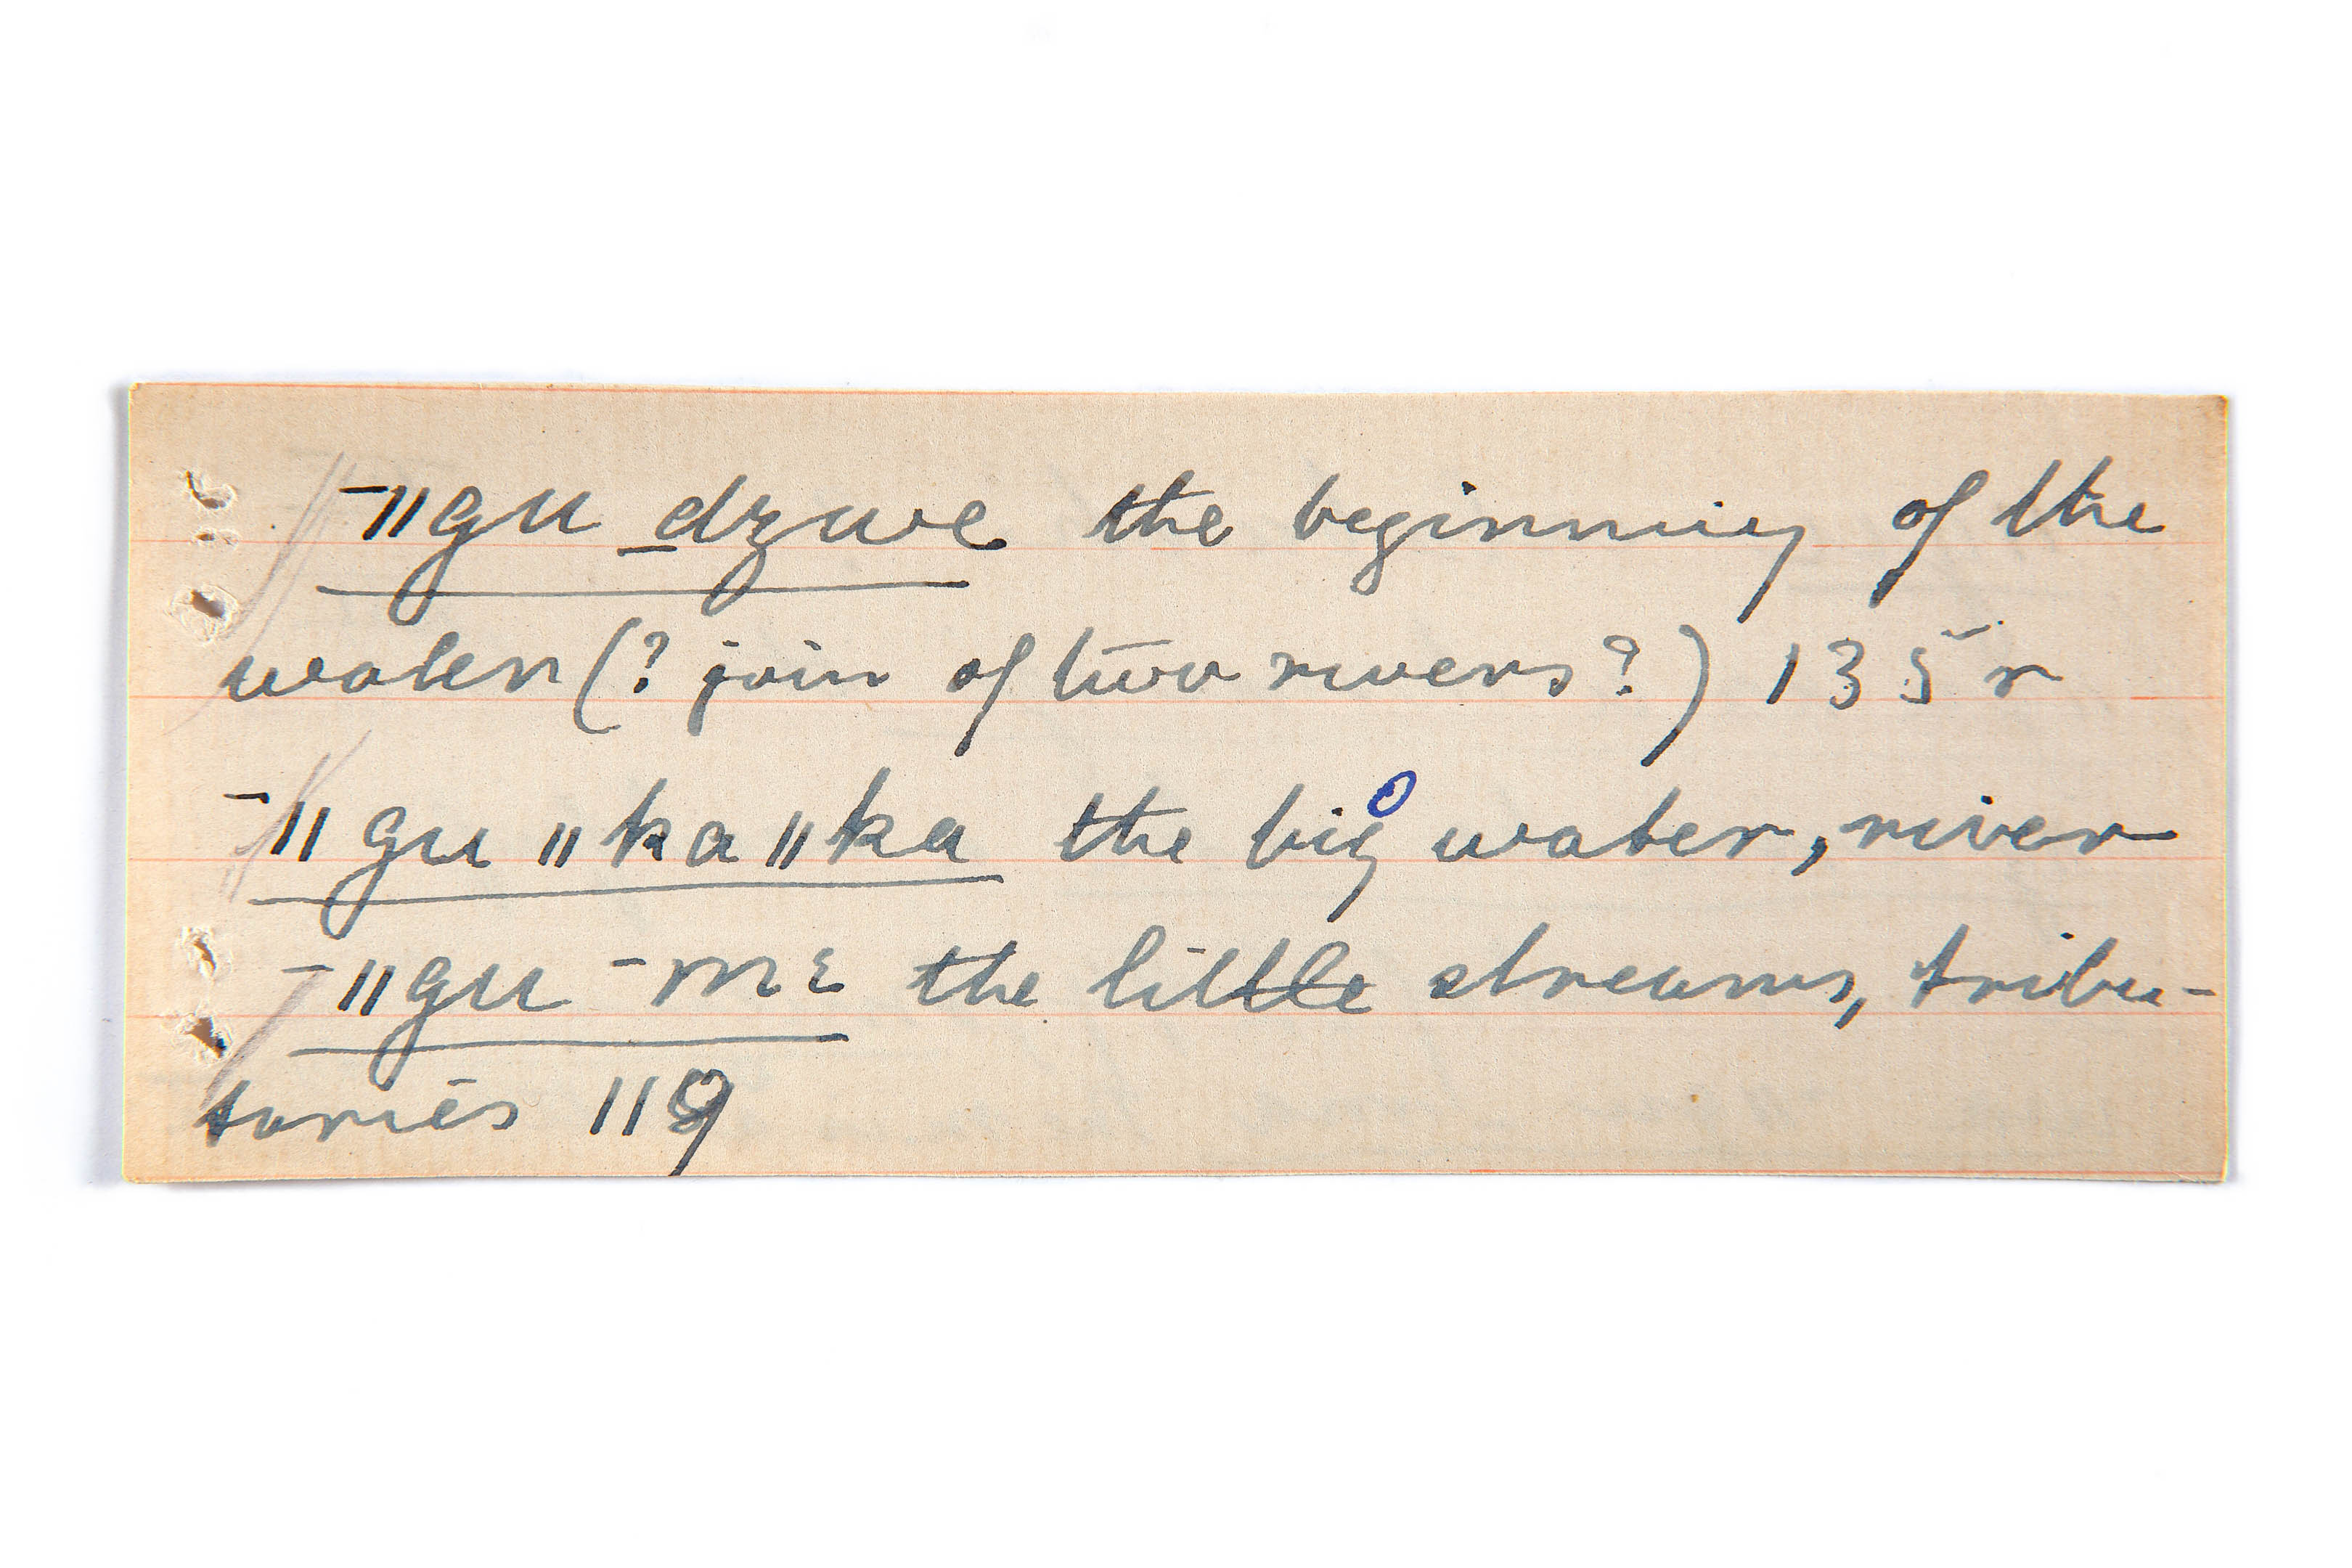 ¯ǁgu _dzwe the beginning of the
water (? join of two rivers?) 135 r
¯ǁgu ǁkaǁka the big water, river
¯ǁgu ¯mɛ the little streams, tribu-
taries 119